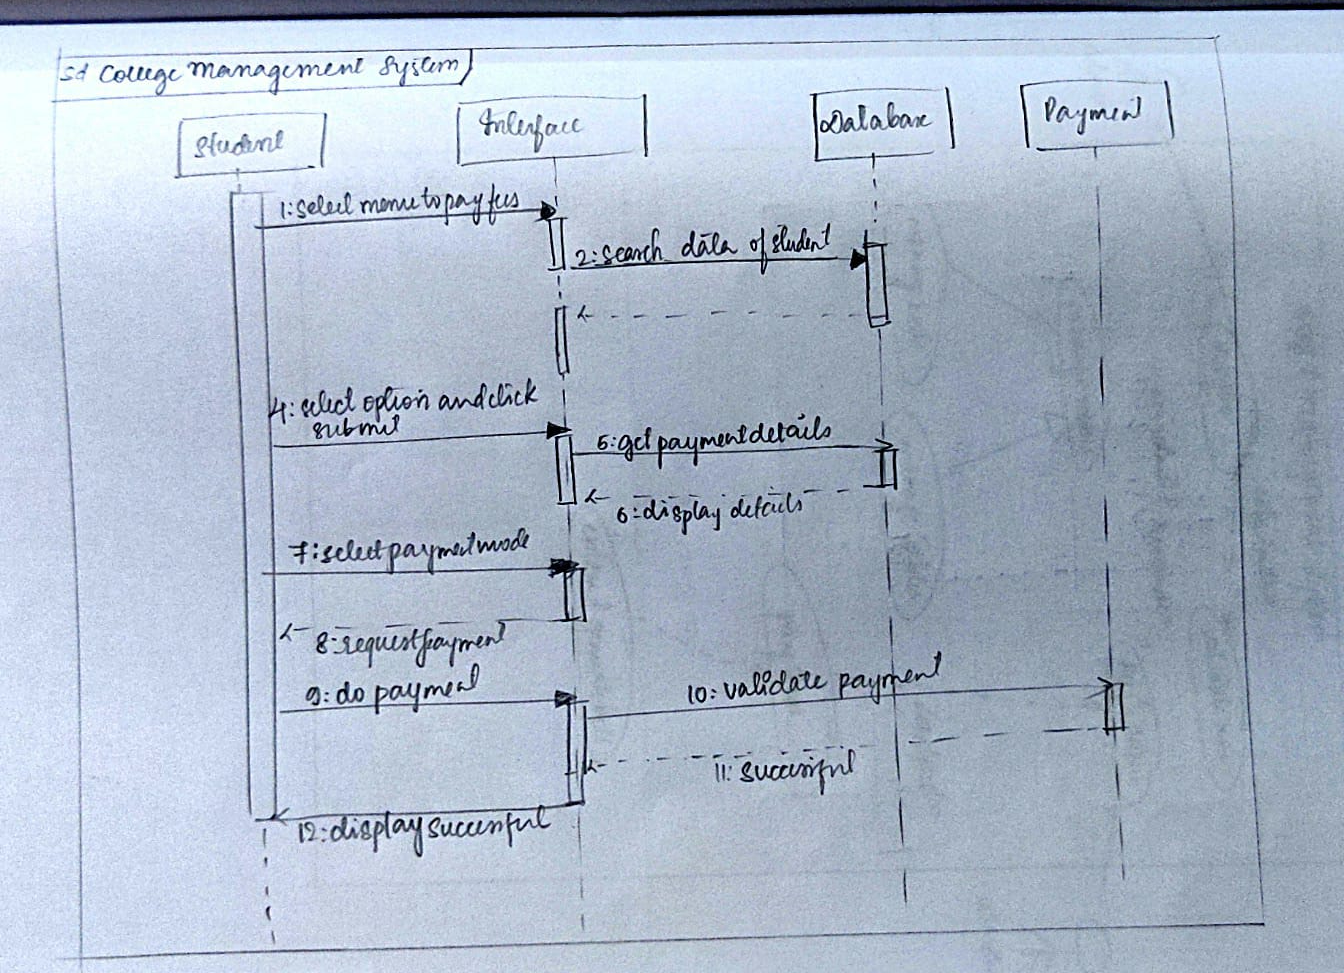 sd College Management System
Student
Interface
Database
Payment
1: select menu to pay fees
2: search data of student
4: select option and click
submit
5: get payment details
6: display details
7: select payment mode
8: request payment
9: do payment
10: validate payment
11: successful
12: display successful